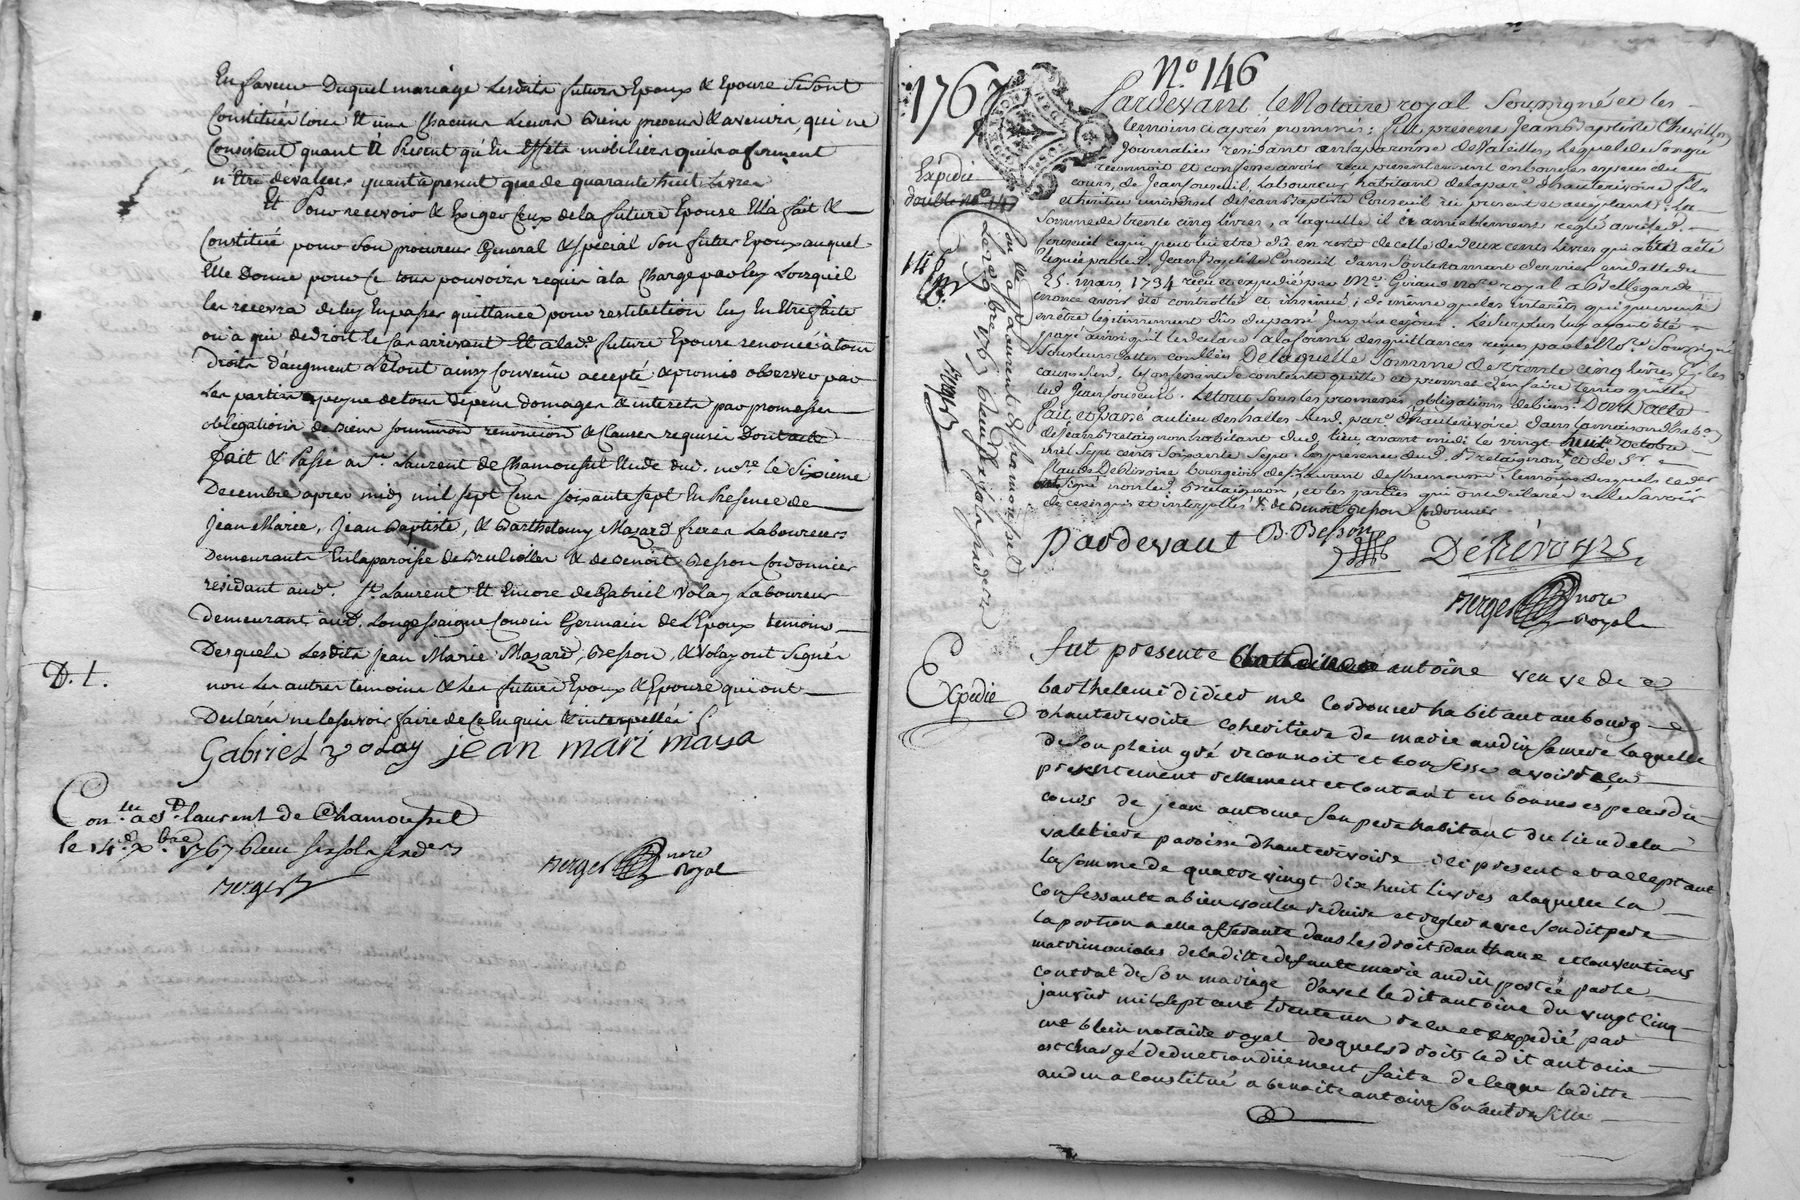 En faveur Duquel mariage Lesdits futurs Epoux & Epouse Se Sont
Constitués tous Et uns Chacuns Leurs biens presens & avenirs, qui ne
Consistent quant à Present qu'En Effets mobiliers quils afirment
n'Etre de valeur quant à present que de quarante huit Livres
Et Pour recevoir & Exiger Ceux de la future Epouse Ella fait &
Constitué pour Son procureur General & special Son futur Epoux auquel
Elle Donne pour Ce tous pouvoirs requis à la Charge par luy Lorsquil
les recevra de luy En passer quittance pour restitution luy En Etre faite
ou à qui de droit le Cas arrivant Et a lad. future Epouse renoncé à tous
droits d'augment Le tout ainsy Convenû accepté & promis observer par
Les parties a peyne de tous depens domages & interets par promesses
obligations de biens soumission renonciation & Clauses requises Dont acte
fait & Passé a St. Laurent de Chamousset Etude dud. nore. le Sixieme
Decembre apres midy mil sept Cens soixante sept En Presence de
Jean Marie, Jean Baptiste, & Barthelemy Mazard freres Laboureurs
demeurants En la paroisse de Brulioles & de Benoit Besson Cordonnier
residant aud. St. Laurent Et Encore de Gabriel Volay Laboureur
demeurant aud. Longessaigne Cousin Germain de L'Epoux temoins
Desquels Lesdits Jean Marie Mazard, Besson, & Volay ont Signés
non Les autres temoins & Les futurs Epoux & Epouse qui ont
Declarés ne le Savoir faire de Ce Enquis & interpellés
Gabriel volay jean mari masa
D. 1.
Conlé. a St. laurent de Chamousset
le 14e. Xbre 1767 Reçu six sols six ders
Berger
Berger nore
Royal
1767
No. 146
Pardevant le Notaire royal Soussigné et les
temoins cy après nommés : fut present Jean Baptiste
Journalier residant en la paroisse de Lequel de Son gré
reconnoit et confesse avoir reçu presentement en bonnes especes du
cours, de Jean Couseuil, Laboureur habitant de la par. d'hauterivoire fils
et heritier universel de Jean Baptiste Couseuil icy present et acceptant : la
Somme de trente cinq Livres, a laquelle il amiablement reglé avec led.
Couseuil ce qui peut lui etre dû en reste de celle de deux cents Livres qui a été
Leguée par led. Jean Baptiste Couseuil dans Son testament dernier en datte du
25. mars, 1734 reçu et expedié par Me. Giraud nore. royal a Bellegarde
enoncé avoir été controllé et insinué, de même que les interêts qui peuvent
en être legitimement dûs du passé jusqu'a ce jour. Le Surplus luy ayant été
payé ainsi qu'il le declare a la forme des quittances reçues par led. Nore. Soussigné
Sous leurs dattes controllées De laquelle Somme de trente cinq Livres
led. Jean Couseuil. Le tout sous les promesses, obligations de biens. Dont acte
Fait et Passé au lieu des halles Succ. par. d'hauterivoire, dans la maison d'hab.on
de Jean Bretaignon habitant dud. lieu avant midi le vingt huit octobre
mil Sept cents Soixante Sept. En presence dud. Bretaignon et de Sr.
Claude Derivoire bourgeois de St. Laurent de Chamousset. temoins desquels ce der
signé non led. Bretaignon, et les parties qui ont declarés ne le Savoir
de ce enquis et interpellés & de Benoit Besson Cordonnier
pardevant B. Besson Dérivoyre
Berger nore
Royal
Expedié
double no. 147
146
Conlé. a St. Laurent de Chamousset
Le 1767 Reçu
Berger
Expedié
fut presente antoine veuve de
barthelemi didier me Cordonier habitant au bourg
d'hauterivoire coheritiere de marie audin sa mere laquelle
de son plein gré reconnoit et confesse avoir reçu
presentement reellement et contant en bonnes especes du
cours de jean antoine son pere habitant du lieu de la
valetiere paroisse d'hauterivoire ici present et acceptant
la somme de quatre vingt dix huit livres a laquelle la
confessante a bien voulu reduire et regler avec sondit pere
la portion a elle afferante dans les droits dauthaux et conventions
matrimoniales de la ditte defunte marie audin portée par le
contrat de son mariage d'avec le dit antoine du vingt cinq
janvier mil sept cent trente un reçu et expedié par
me blein notaire royal desquels droits le dit antoine
est chargé deduction diiement faite de ce que laditte
audin a constitué a benoite antoine son autre fille